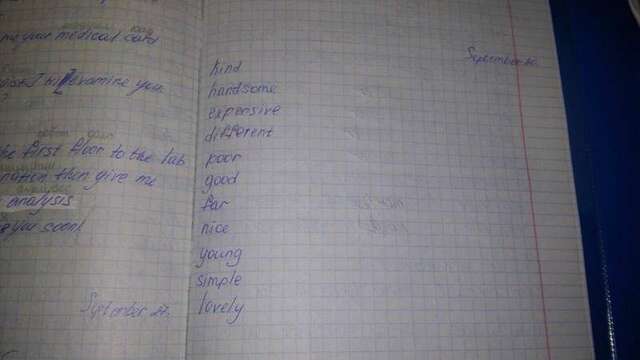 me your medical card
examine you
?
the first floor to the lab
then give me
analysis
you soon!
September 27.
September
kind
handsome
expensive
different
poor
good
far
nice
young
simple
lovely